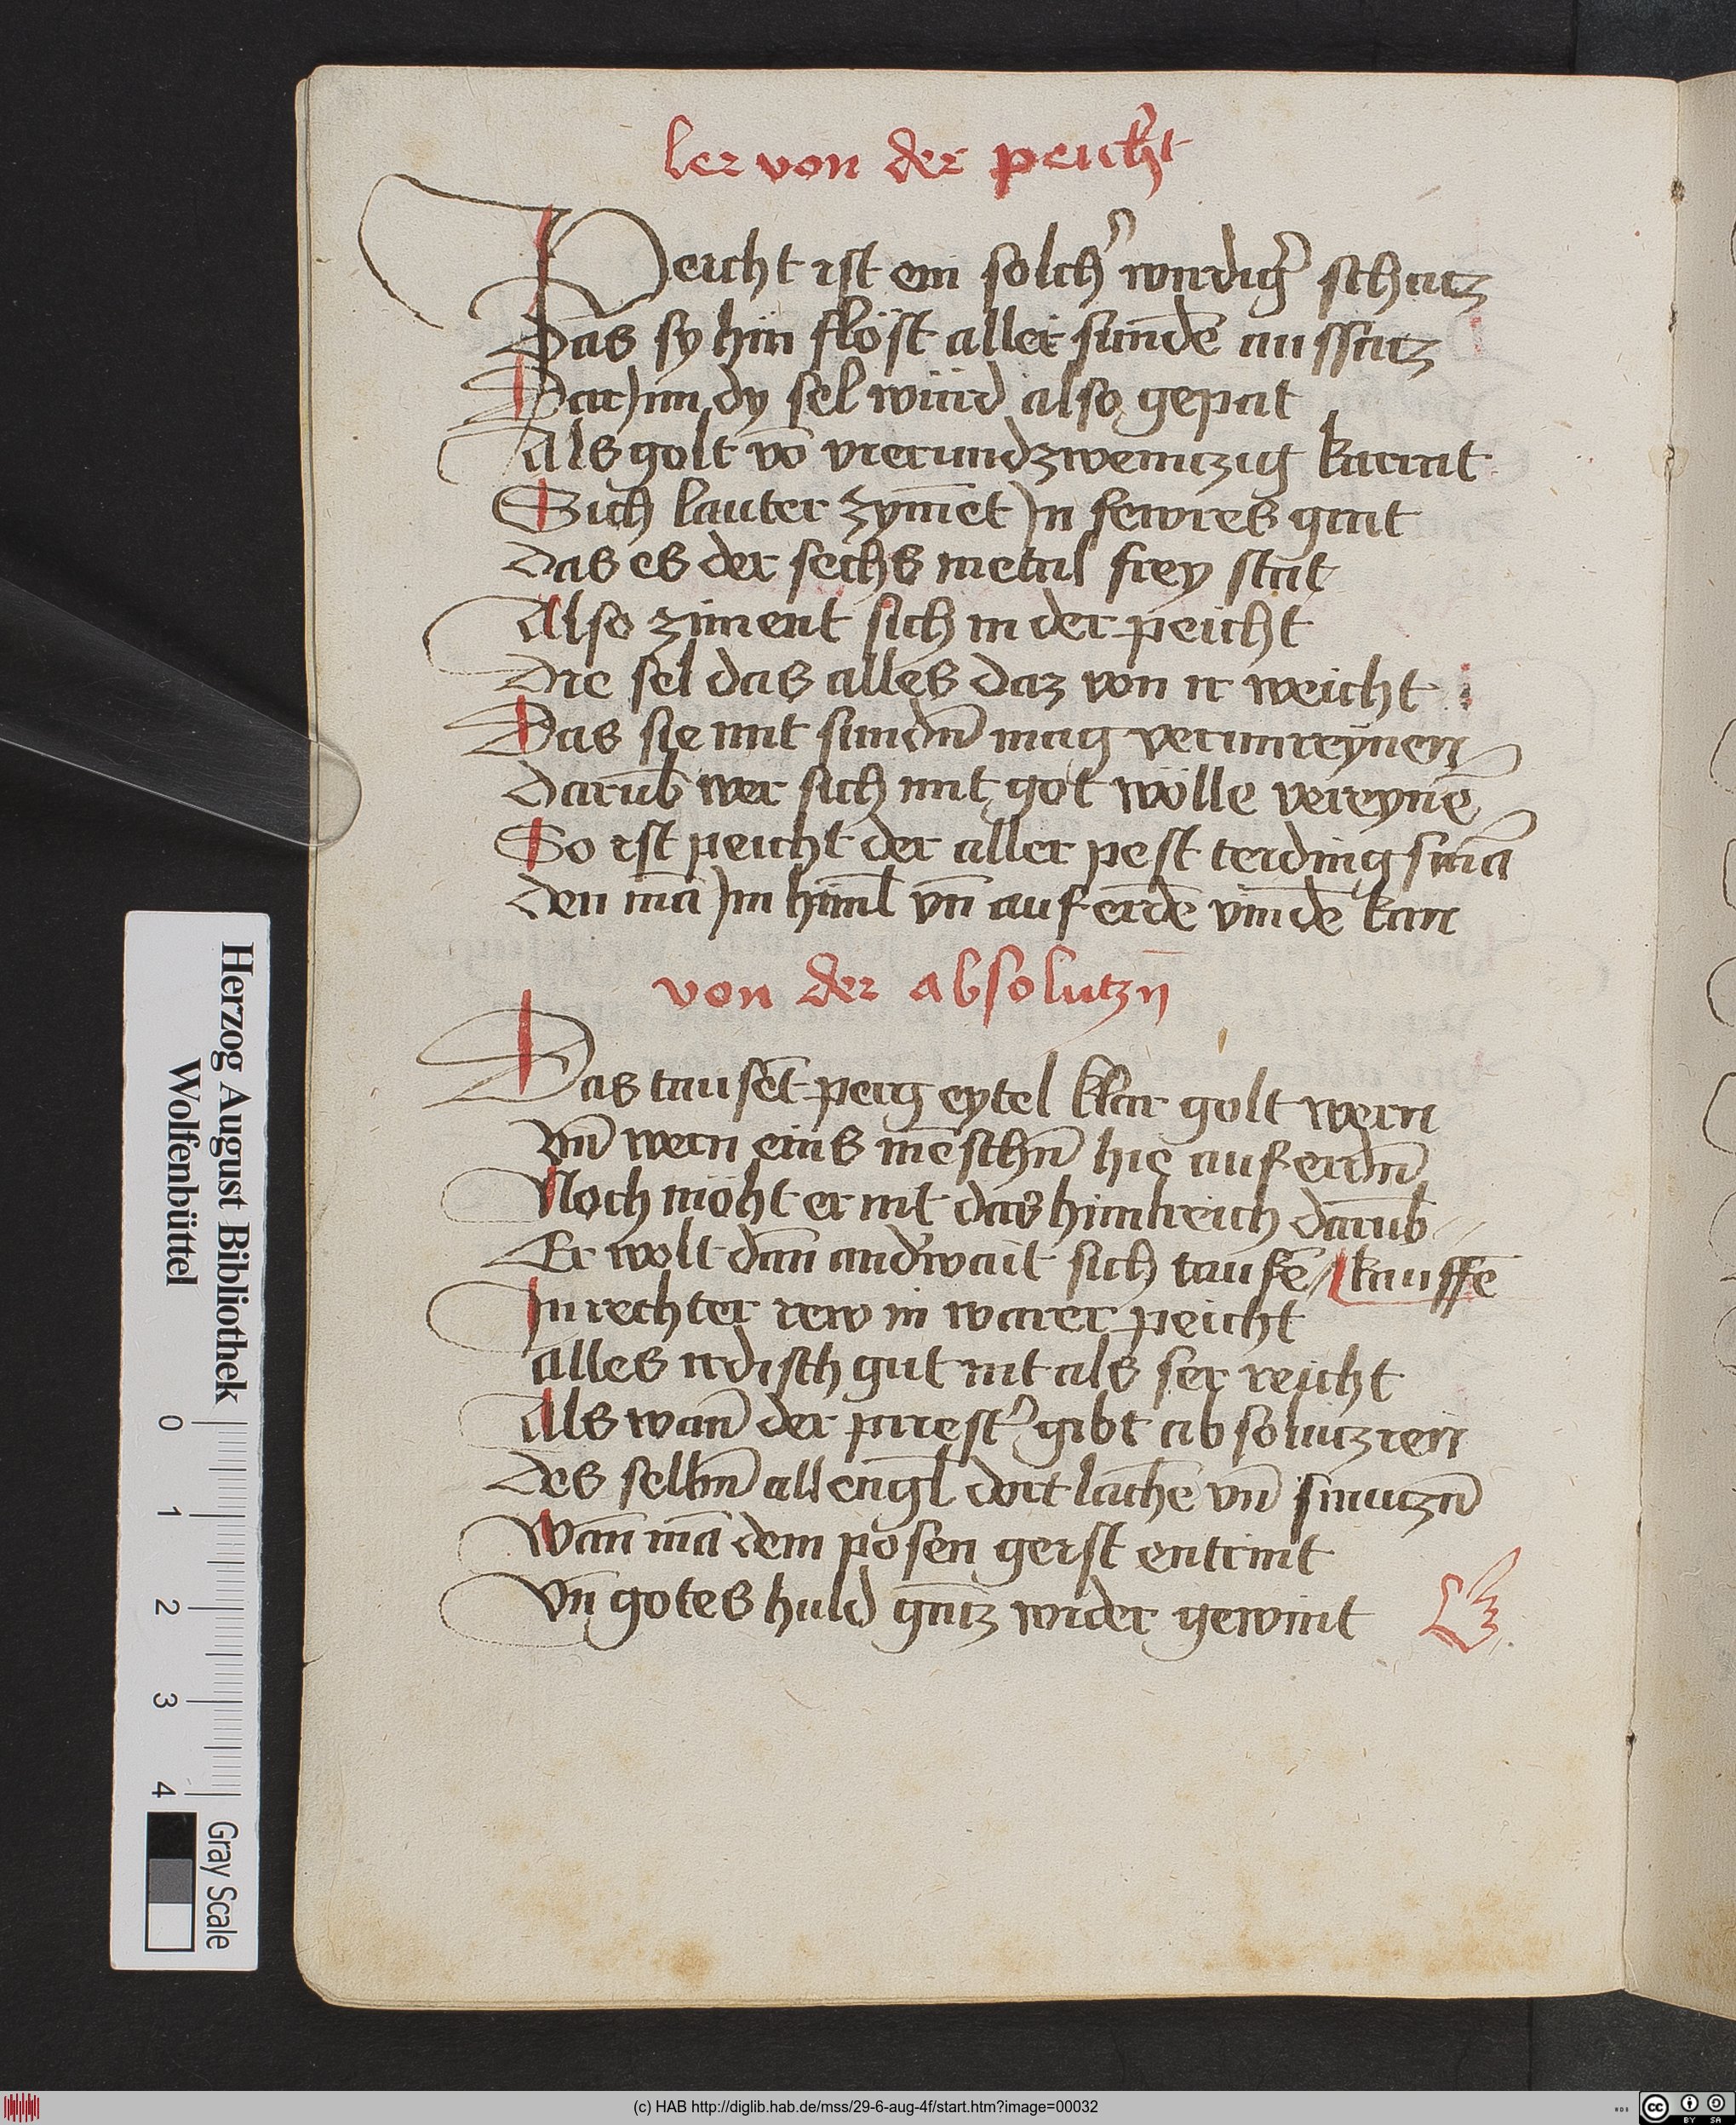 ler von der peicht
Peicht ist ein solchˀ wirdigˀ schatz
Das sy hin flöst aller sunde̅ aussatz
Dar Jnn dy sel wúrd also gepat
Als golt vo̅ vierundzwenczig karrat
Sich lauter zyme̅t Jn fewres grat
das es der sechs metal frey stat
Also ziment sich in der peicht
Die sel das alles daz von ir weicht
Das sie mit sundn̅ mag verunreynen
darub̅ wer sich mit got wölle vereyne̅
So ist peicht der aller pest terding
den ma̅ Jm him̅l vn̅ auf erde̅ vinde̅ kan
von der absolutzn̅
Das tause̅t perg eytel klar golt wern
Vn̅ wern eins me̅schn̅ hie auf erdn̅
Noch möht er nit das himlreich darub̅
Er wolt dan̅ andˀwait sich taufe̅ // kauffe̅
Jn rechter rew in warer peicht
alles irdisch gut nit als ser reicht
Als wan̅ der priestˀ gibt absoluczien
des selbn̅ all engl̅ dort lache̅ vn̅ smuczn̅
Wan̅ ma̅ dem posen geist entrint
Vn̅ gotes huld gantz wider gewint
Herzog August Bibliothek
Wolfenbüttel
0 1 2 3 4
Gray Scale
(c) HAB http://diglib.hab.de/mss/29-6-aug-4f/start.htm?image=00032
cc BY SA